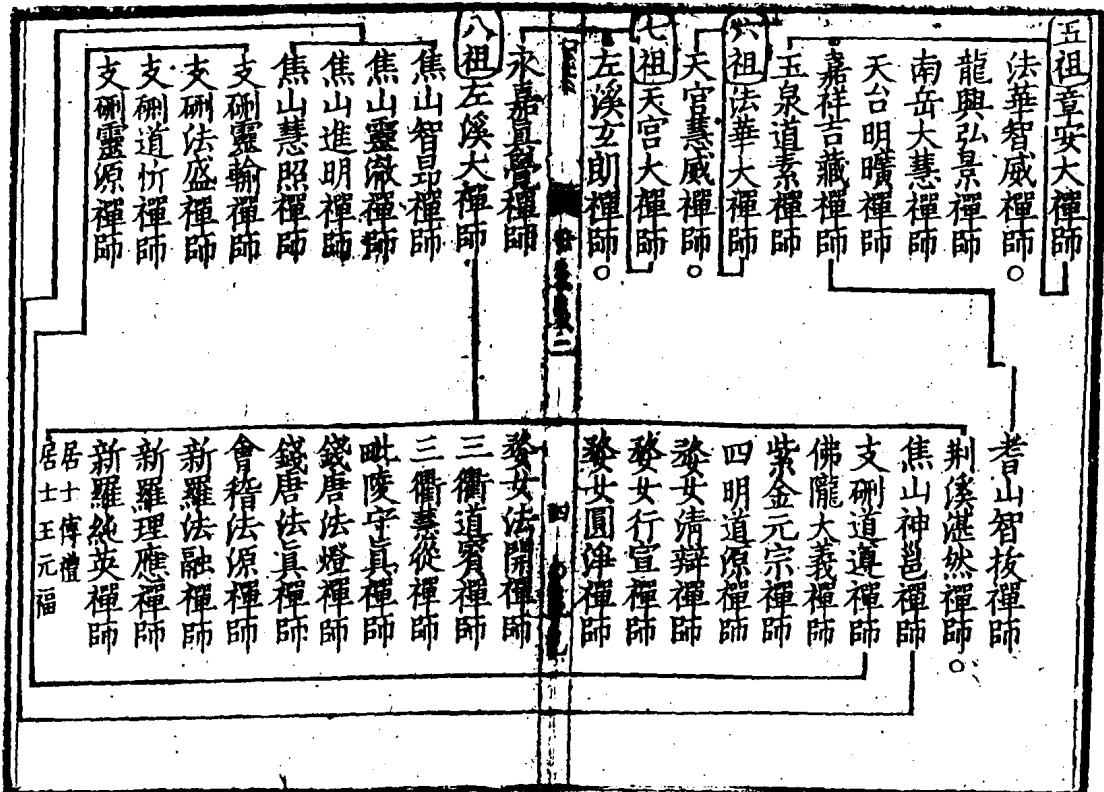 五祖章安大禪師
法華智威禪師○
龍興弘景禪師
南岳大慧禪師
天台明曠禪師
嘉祥吉藏禪師
玉泉道素禪師
六祖法華大禪師
天宮慧威禪師○
七祖天宮大禪師
左溪玄朗禪師○
永嘉真覺禪師
八祖左溪大禪師
焦山智昂禪師
焦山靈徹禪師
焦山進明禪師
焦山慧照禪師
支硎靈輸禪師
支硎法盛禪師
支硎道忻禪師
支硎靈源禪師
耆山智拔禪師
荆溪湛然禪師○
焦山神邕禪師
支硎道遵禪師
佛隴大義禪師
紫金元宗禪師
四明道源禪師
婺女清辯禪師
婺女行宣禪師
婺女圓淨禪師
四
婺女法開禪師
三衢道賓禪師
三衢慧從禪師
毗陵守真禪師
錢唐法燈禪師
錢唐法真禪師
會稽法源禪師
新羅法融禪師
新羅理應禪師
新羅純英禪師
居士傅禮
居士王元福